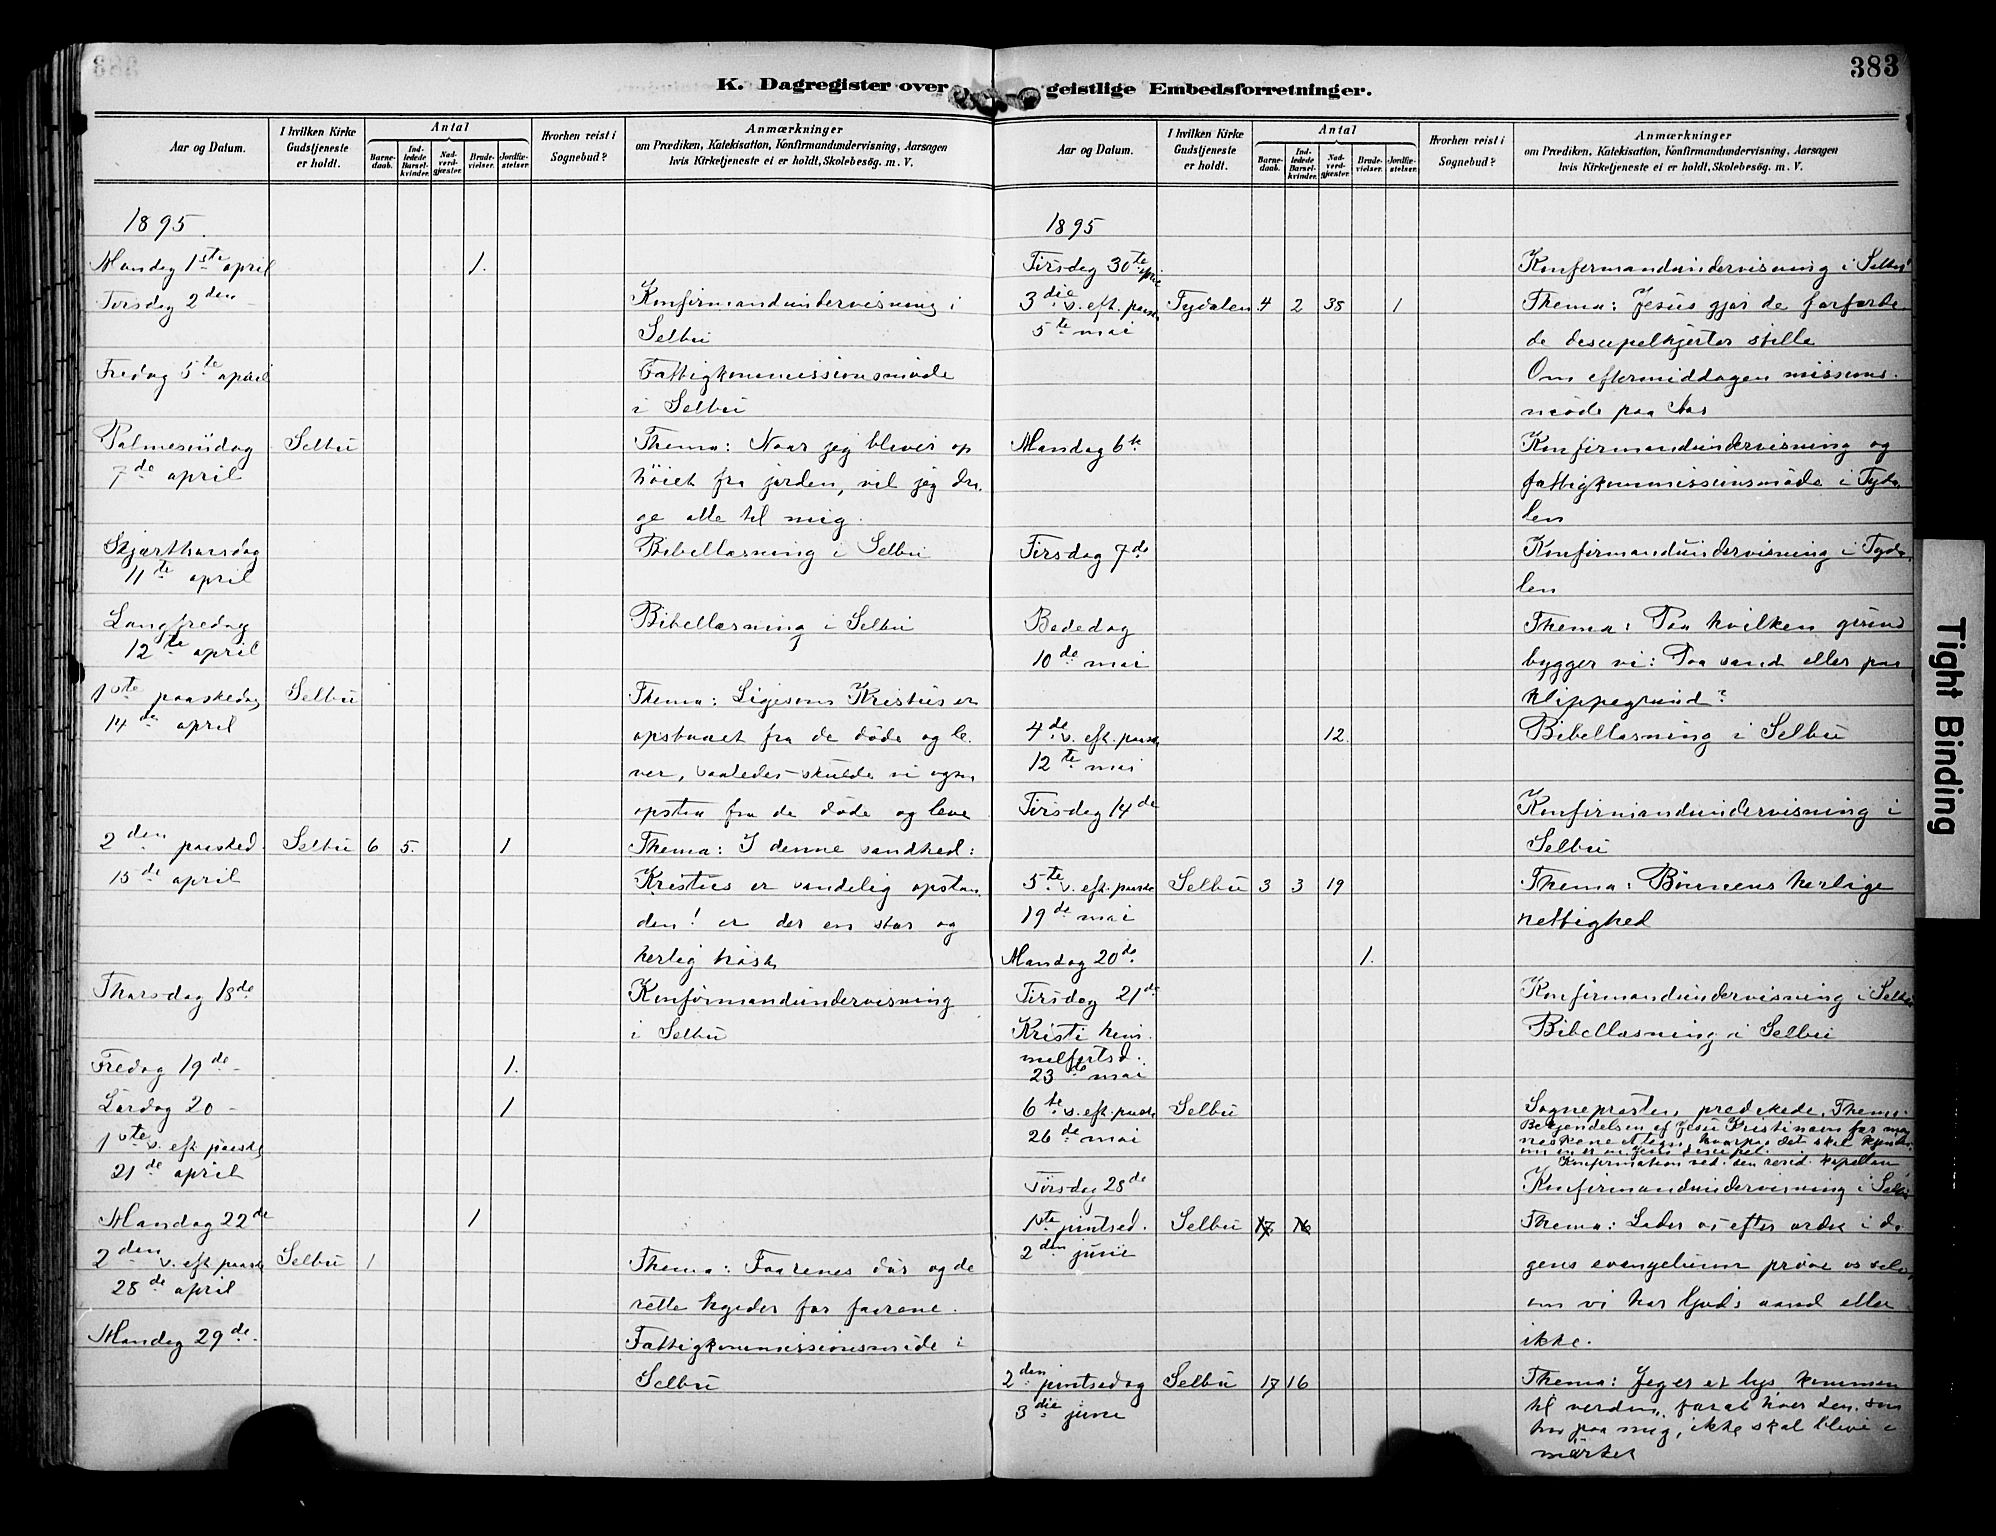 383
K. Dagregister over geistlige Embedsforretninger.
Aar og Datum.
I hvilken Kirke Gudstjeneste er holdt.
Antal
Barne-daab.
Ind-ledede Barsel-kvinder.
Nad-verd-gjæster.
Brude-vielser.
Jordfæ-stelser.
Hvorhen reist i Sognebud?
Anmærkninger
om Prædiken, Katekisation, Konfirmandundervisning, Aarsagen
hvis Kirketjeneste ei er holdt, Skolebesøg. m. V.
1895.
Mandag 1ste april 1.
Tirsdag 2den - Konfirmandundervisning i
Selbu
Fredag 5te april Fattigkommissionsmøde
i Selbu
Palmesøndag Selbu Thema: Naar jeg bliver op
7de april høiet fra jorden, vil jeg dra.
ge alle til mig.
Skjærthorsdag Bibellæsning i Selbu
11te april
Langfredag Bibellæsning i Selbu
12te april
1ste paaskedag Selbu Thema: Ligesom Kristus er
14de april opstanet fra de døde og le.
ver, saaledes skulde vi ogsaa
opstaa fra de døde og leve
2den paasked. Selbu 6 5. 1 Thema: I denne sandhed:
15de april Kristus er sandelig opstan
den! er der en stor og
herlig trøst
Thorsdag 18de Konfirmandundervisning
i Selbu
Fredag 19de - 1.
Lørdag 20 - 1
1ste s. eft. paaske
21de april
Mandag 22de 1
2den s. eft. paaske Selbu 1 Thema: Faarenes dør og de
28de april rette hyrder for faarene.
Mandag 29de - Fattigkommissionsmøde i
Selbu
Aar og Datum.
I hvilken Kirke Gudstjeneste er holdt.
Antal
Barne-daab.
Ind-ledede Barsel-kvinder.
Nad-verd-gjæster.
Brude-vielser.
Jordfæ-stelser.
Hvorhen reist i Sognebud?
Anmærkninger
om Prædiken, Katekisation, Konfirmandundervisning, Aarsagen
hvis Kirketjeneste ei er holdt, Skolebesøg. m. V.
1895
Tirsdag 30te april Konfirmandundervisning i Selbu
3die s. eft. paaske Tydalen 4 2 38 1 Thema: Jesus gjør de forfærde
5te mai de discipelhjerter stille
Om eftermiddagen missions.
møde paa Aas
Mandag 6te Konfirmandundervisning og
fattigkommissionsmøde i Tyda
len
Tirsdag 7de Konfirmandundervisning i Tyda
len
Bededag Thema: Paa hvilken grund
10de mai bygger vi: Paa sand eller paa
klippegrund?
4de s. eft. paaske 12. Bibellæsning i Selbu
12te mai
Tirsdag 14de Konfirmandundervisning i
Selbu
5te s. eft. paaske Selbu 3 3 19 Thema: Bønnens herlige
19de mai rettighed
Mandag 20de 1.
Tirsdag 21de Konfirmandundervisning i Selbu
Kristi him. Bibellæsning i Selbu
melfartsd.
23de mai
6te s. eft. paaske Selbu Sognepresten prædikede. Thema:
26de mai Bekjendelsen af Jesu Kristi navn for men
neskene et tegn, hvorpaa det skal kjendes
om en er en Jesu discipel.
Konfirmation ved den resid. kapellan
Tirsdag 28de Konfirmandundervisning i Selbu
1ste pintsed. Selbu 17 16 Thema: Lader os efter ordet i da
2den juni gens evangelium prøve os selv,
om vi har Guds aand eller
ikke.
2den pintsedag Selbu 17 16 Thema: Jeg er et lys kommen
3die juni til verden, forat hver den, som
tror paa mig, ikke skal blive i
mørket
Tight Binding